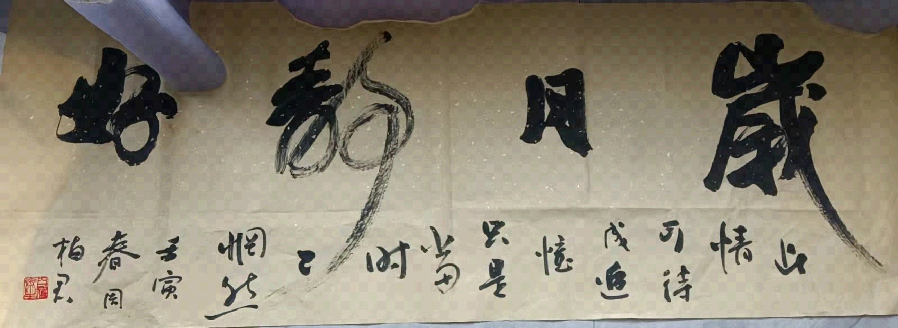 歲月靜好
此情可待成追憶只是當时已惘然
壬寅春月柏君